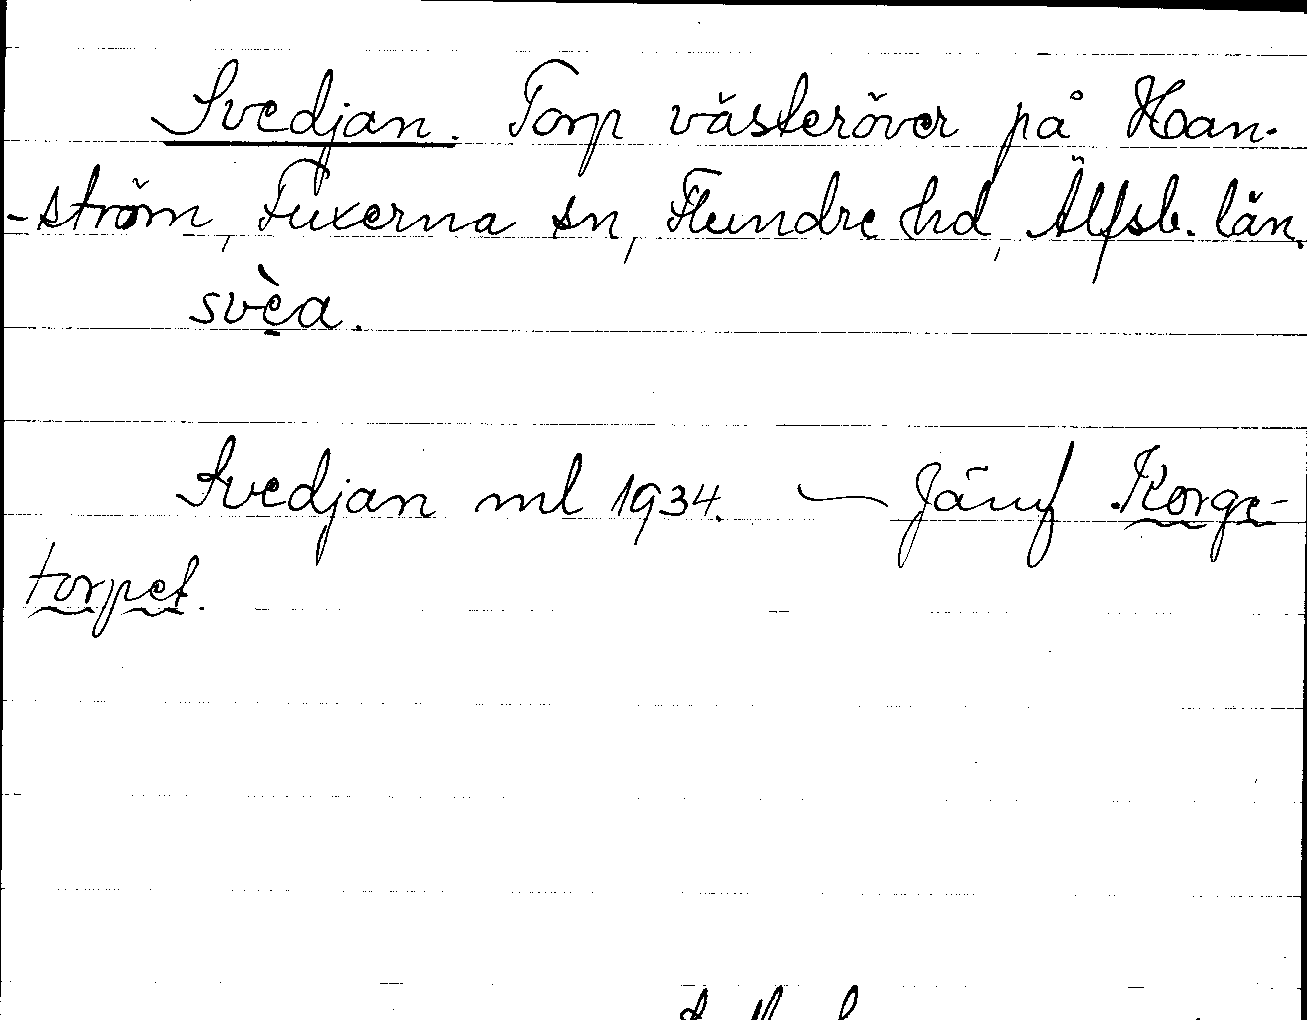 Svedjan. Torp västeröver på Han-
-ström, Fuxerna sn, Flundre hd, Älfsb. län.
svèa.
Svedjan ml 1934. — Jämf Korge-
torpet.